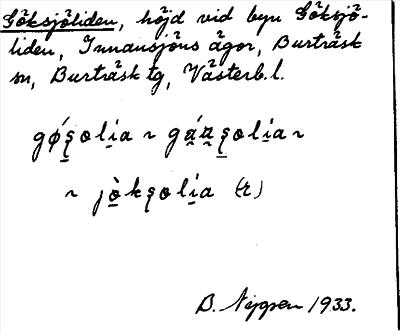 Göksjöliden, höjd vid byn Göksjö-
liden, Innansjöns ägor, Burträsk
sn, Burträsk tg, Västerb. l.
gǿṣolia ~ gáṇṣolia ~
~ jòksolia (r)
B. Nygren 1933.